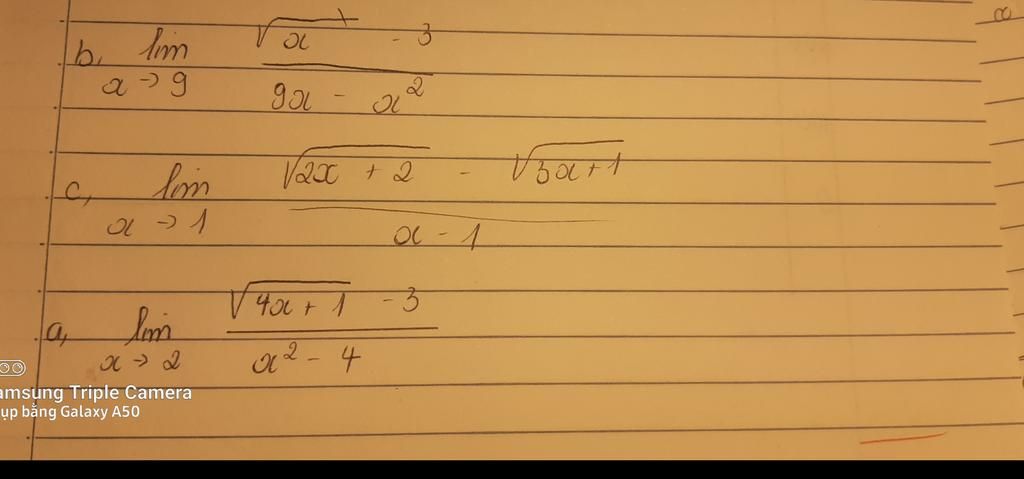 b, lim x→9 (√x - 3)/(9x - x²)
c, lim x→1 (√(2x + 2) - √(3x+1))/(x - 1)
a, lim x→2 (√(4x + 1) - 3)/(x² - 4)
amsung Triple Camera
ụp bằng Galaxy A50